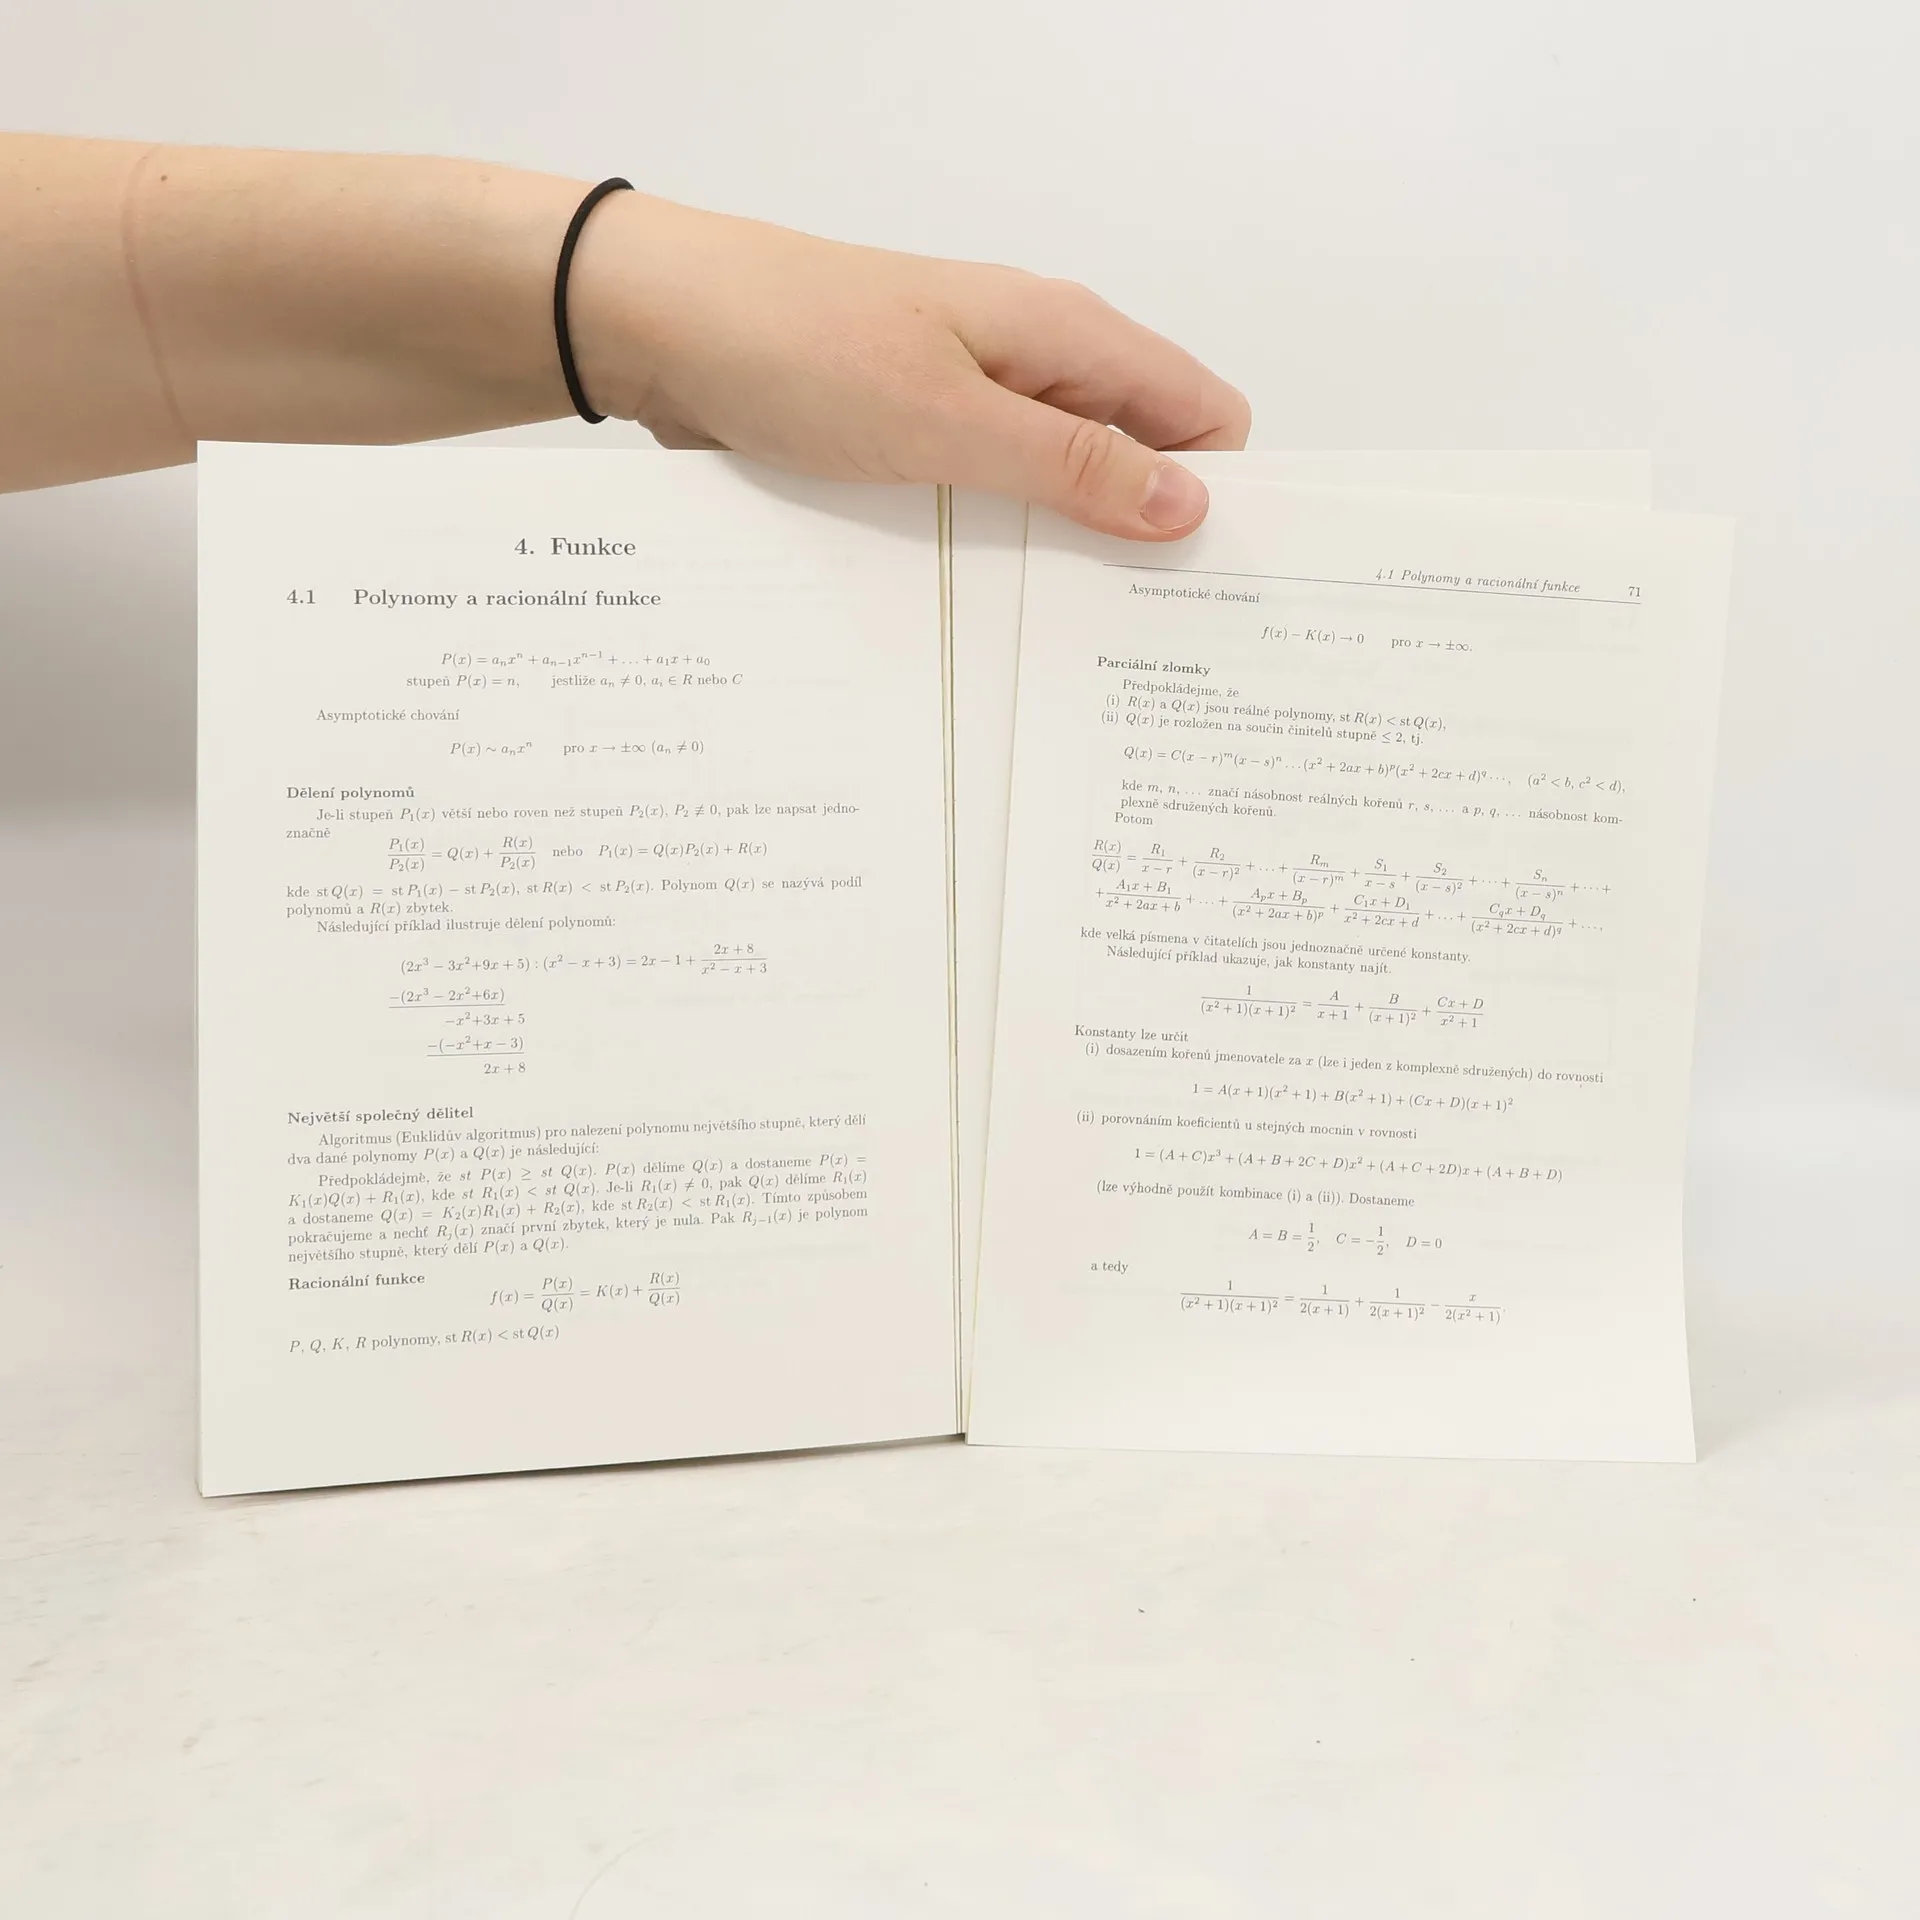 4. Funkce
4.1 Polynomy a racionální funkce
P(x) = aₙxⁿ + aₙ₋₁xⁿ⁻¹ + … + a₁x + a₀
stupeň P(x) = n, jestliže aₙ ≠ 0, aᵢ ∈ R nebo C
Asymptotické chování
P(x) ~ aₙxⁿ pro x → ±∞ (aₙ ≠ 0)
Dělení polynomů
Je-li stupeň P₁(x) větší nebo roven než stupeň P₂(x), P₂ ≢ 0, pak lze napsat jedno-
značně
P₁(x)/P₂(x) = Q(x) + R(x)/P₂(x) nebo P₁(x) = Q(x)P₂(x) + R(x)
kde st Q(x) = st P₁(x) − st P₂(x), st R(x) < st P₂(x). Polynom Q(x) se nazývá podíl
polynomů a R(x) zbytek.
Následující příklad ilustruje dělení polynomů:
(2x³ − 3x²+9x + 5) : (x² − x + 3) = 2x − 1 + (2x + 8)/(x² − x + 3)
−(2x³ − 2x²+6x)
−x²+3x + 5
−(−x²+x − 3)
2x + 8
Největší společný dělitel
Algoritmus (Euklidův algoritmus) pro nalezení polynomu největšího stupně, který dělí
dva dané polynomy P(x) a Q(x) je následující:
Předpokládejme, že st P(x) ≥ st Q(x). P(x) dělíme Q(x) a dostaneme P(x) =
K₁(x)Q(x) + R₁(x), kde st R₁(x) < st Q(x). Je-li R₁(x) ≠ 0, pak Q(x) dělíme R₁(x)
a dostaneme Q(x) = K₂(x)R₁(x) + R₂(x), kde st R₂(x) < st R₁(x). Tímto způsobem
pokračujeme a nechť Rⱼ(x) značí první zbytek, který je nula. Pak Rⱼ₋₁(x) je polynom
největšího stupně, který dělí P(x) a Q(x).
Racionální funkce
f(x) = P(x)/Q(x) = K(x) + R(x)/Q(x)
P, Q, K, R polynomy, st R(x) < st Q(x)
4.1 Polynomy a racionální funkce 71
Asymptotické chování
f(x) − K(x) → 0 pro x → ±∞.
Parciální zlomky
Předpokládejme, že
(i) R(x) a Q(x) jsou reálné polynomy, st R(x) < st Q(x),
(ii) Q(x) je rozložen na součin činitelů stupně ≤ 2, tj.
Q(x) = C(x − r)ᵐ(x − s)ⁿ … (x² + 2ax + b)ᵖ(x² + 2cx + d)^q …, (a² < b, c² < d),
kde m, n, … značí násobnost reálných kořenů r, s, … a p, q, … násobnost kom-
plexně sdružených kořenů.
Potom
R(x)/Q(x) = R₁/(x − r) + R₂/(x − r)² + … + Rₘ/(x − r)ᵐ + S₁/(x − s) + S₂/(x − s)² + … + Sₙ/(x − s)ⁿ + … +
+ (A₁x + B₁)/(x² + 2ax + b) + … + (Aₚx + Bₚ)/(x² + 2ax + b)ᵖ + (C₁x + D₁)/(x² + 2cx + d) + … + (C_qx + D_q)/(x² + 2cx + d)^q + …,
kde velká písmena v čitatelích jsou jednoznačně určené konstanty.
Následující příklad ukazuje, jak konstanty najít.
1/((x² + 1)(x + 1)²) = A/(x + 1) + B/(x + 1)² + (Cx + D)/(x² + 1)
Konstanty lze určit
(i) dosazením kořenů jmenovatele za x (lze i jeden z komplexně sdružených) do rovnosti
1 = A(x + 1)(x² + 1) + B(x² + 1) + (Cx + D)(x + 1)²
(ii) porovnáním koeficientů u stejných mocnin v rovnosti
1 = (A + C)x³ + (A + B + 2C + D)x² + (A + C + 2D)x + (A + B + D)
(lze výhodně použít kombinace (i) a (ii)). Dostaneme
A = B = 1/2, C = −1/2, D = 0
a tedy
1/((x² + 1)(x + 1)²) = 1/(2(x + 1)) + 1/(2(x + 1)²) − x/(2(x² + 1)).